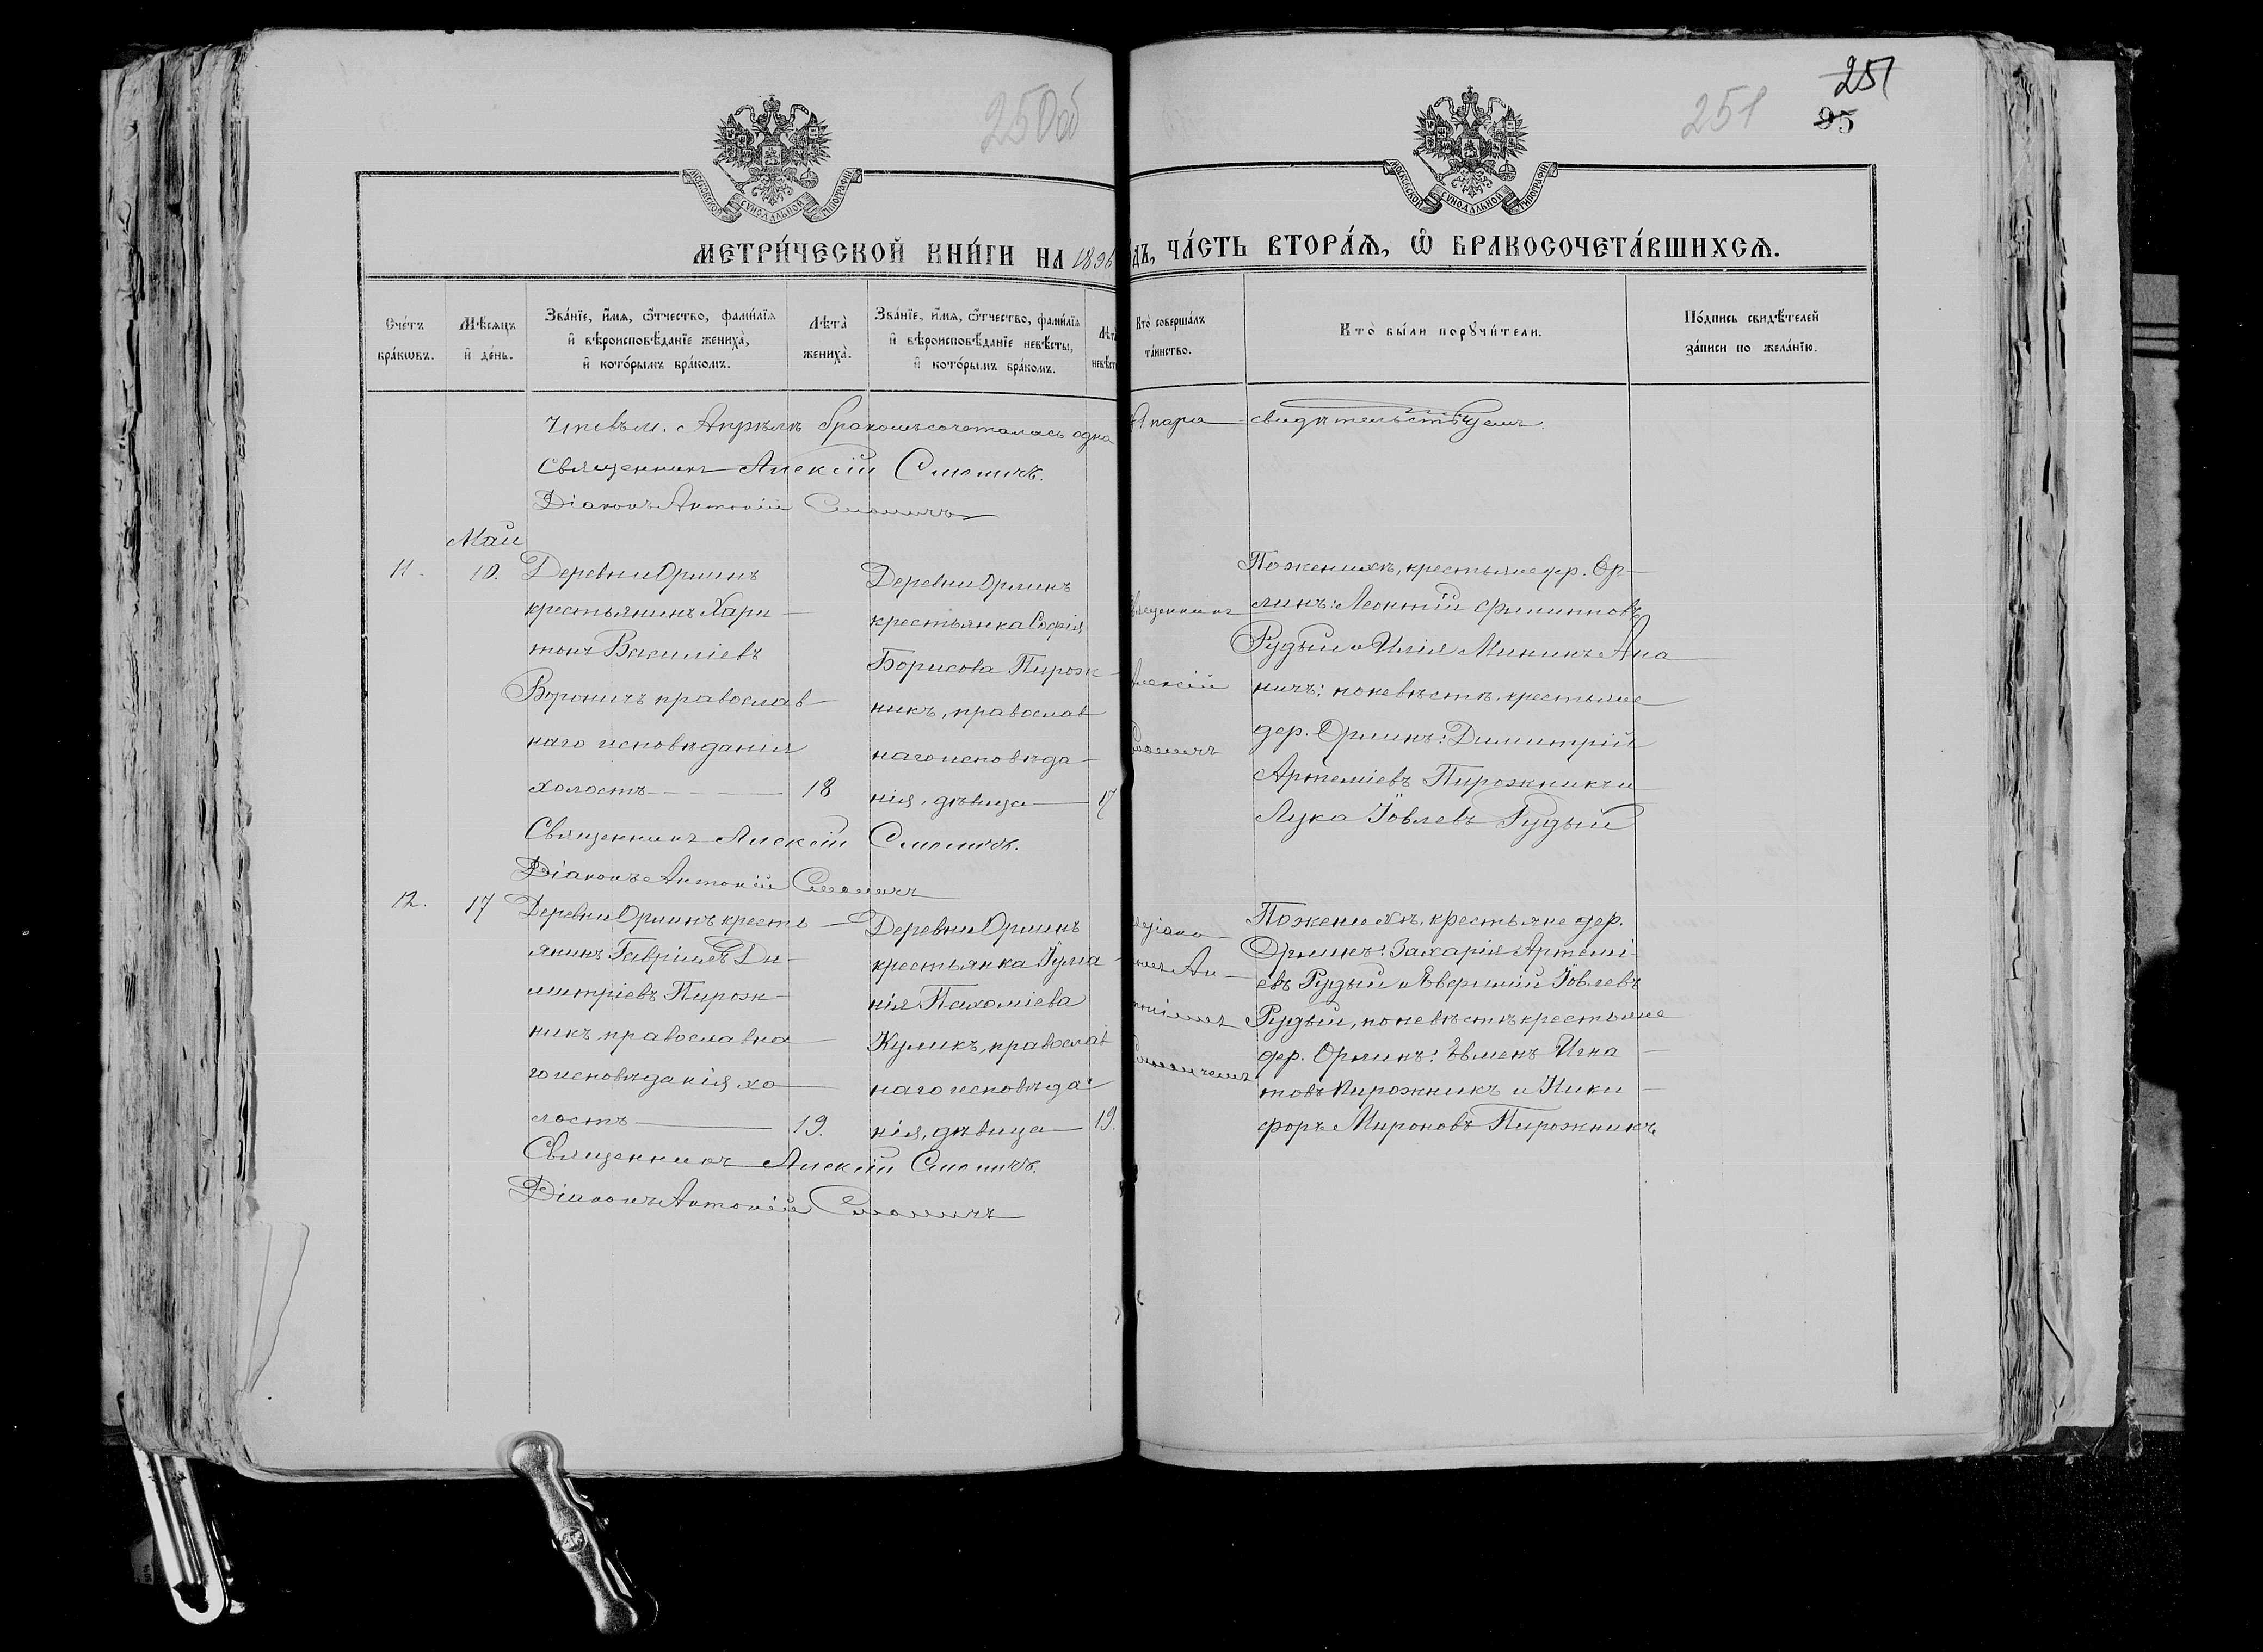 250об
251
251
95
МОСКОВСКОЙ СѴНОДАЛЬНОЙ ТИПОГРАФІИ
МОСКОВСКОЙ СѴНОДАЛЬНОЙ ТИПОГРАФІИ
МЕТРИ́ЧЕСКОЙ КНИ́ГИ НА 1896 ДЪ, ЧА́СТЬ ВТОРА́Ѧ, Ѽ БРАКОСОЧЕТА́ВШИХСѦ.
Сче́тъ бра́кωвъ.
Мѣ́сяцъ и де́нь.
Зва́нїе, и́мѧ, ѻ҆́тчество, фами́лїѧ и вѣроисповѣ́данїе жениха̀, и кото́рымъ бра́комъ.
Лѣта̀ жениха̀.
Зва́нїе, и́мѧ, ѻ҆́тчество, фами́лїѧ и вѣроисповѣ́данїе невѣ́сты, и кото́рымъ бра́комъ.
Лѣта невѣст
Кто̀ соверша́лъ та́инство.
Кто̀ бы́ли порꙋчи́тели.
По́дпись свидѣ́телей за́писи по жела́нїю.
Что въ м. Апрѣлѣ бракомъ сочеталась одна
пара свидѣтельствуемъ.
Священникъ Алексій Смоличъ.
Діаконъ Антоній Смоличъ
Май
11. 10.
Деревни Орлинъ
крестьянинъ Хари-
тонъ Василіевъ
Вороничъ православ-
наго исповѣданія
холостъ 18
Деревни Орлинъ
крестьянка Софія
Борисова Пирож-
никъ, православ
наго исповѣда-
нія, дѣвица 17
вященникъ
лексій
моличъ
По женихѣ, крестьяне дер. Ор-
линъ: Леонтій Филипповъ
Рудый и Илія Мининъ Ана
ничъ; по невѣстѣ, крестьяне
дер. Орлинъ: Димитрій
Артеміевъ Пирожникъ и
Лука Іовлевъ Рудый
Священникъ Алексій Смоличъ.
Діаконъ Антоній Смоличъ
12. 17
Деревни Орлинъ кресть-
янинъ Гавріилъ Ди-
митріевъ Пирож-
никъ, православна
го исповѣданія, хо-
лостъ 19.
Деревни Орлинъ
крестьянка Іулiа-
нія Пахоміева
Куликъ, православ
наго исповѣда-
нія, дѣвица 19.
По женихѣ, крестьяне дер.
Орлинъ: Захарія Артемі-
евъ Рудый и Евфимій Іовлевъ
Рудый, по невѣстѣ крестьяне
дер. Орлинъ: Евменъ Игна-
товъ Пирожникъ и Ники-
форъ Мироновъ Пирожникъ
Священникъ Алексій Смоличъ.
Діаконъ Антоній Смоличъ